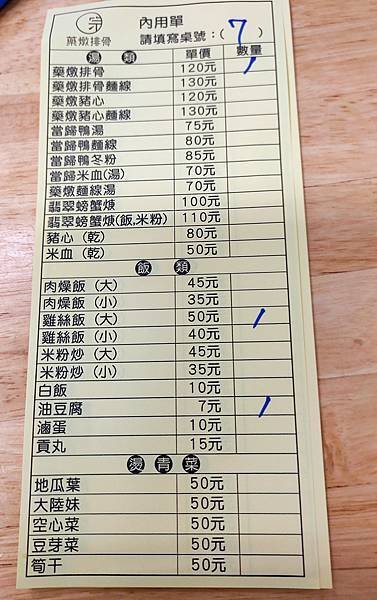 宗
藥燉排骨
內用單
請填寫桌號：( 7 )
湯類 單價 數量
藥燉排骨 120元 /
藥燉排骨麵線 130元
藥燉豬心 120元
藥燉豬心麵線 130元
當歸鴨湯 75元
當歸鴨麵線 80元
當歸鴨冬粉 85元
當歸米血(湯) 70元
藥燉麵線湯 70元
翡翠螃蟹焿 100元
翡翠螃蟹焿(飯,米粉) 110元
豬心 (乾) 80元
米血 (乾) 50元
飯類
肉燥飯 (大) 45元
肉燥飯 (小) 35元
雞絲飯 (大) 50元 /
雞絲飯 (小) 40元
米粉炒 (大) 45元
米粉炒 (小) 35元
白飯 10元
油豆腐 7元 /
滷蛋 10元
貢丸 15元
燙青菜
地瓜葉 50元
大陸妹 50元
空心菜 50元
豆芽菜 50元
筍干 50元